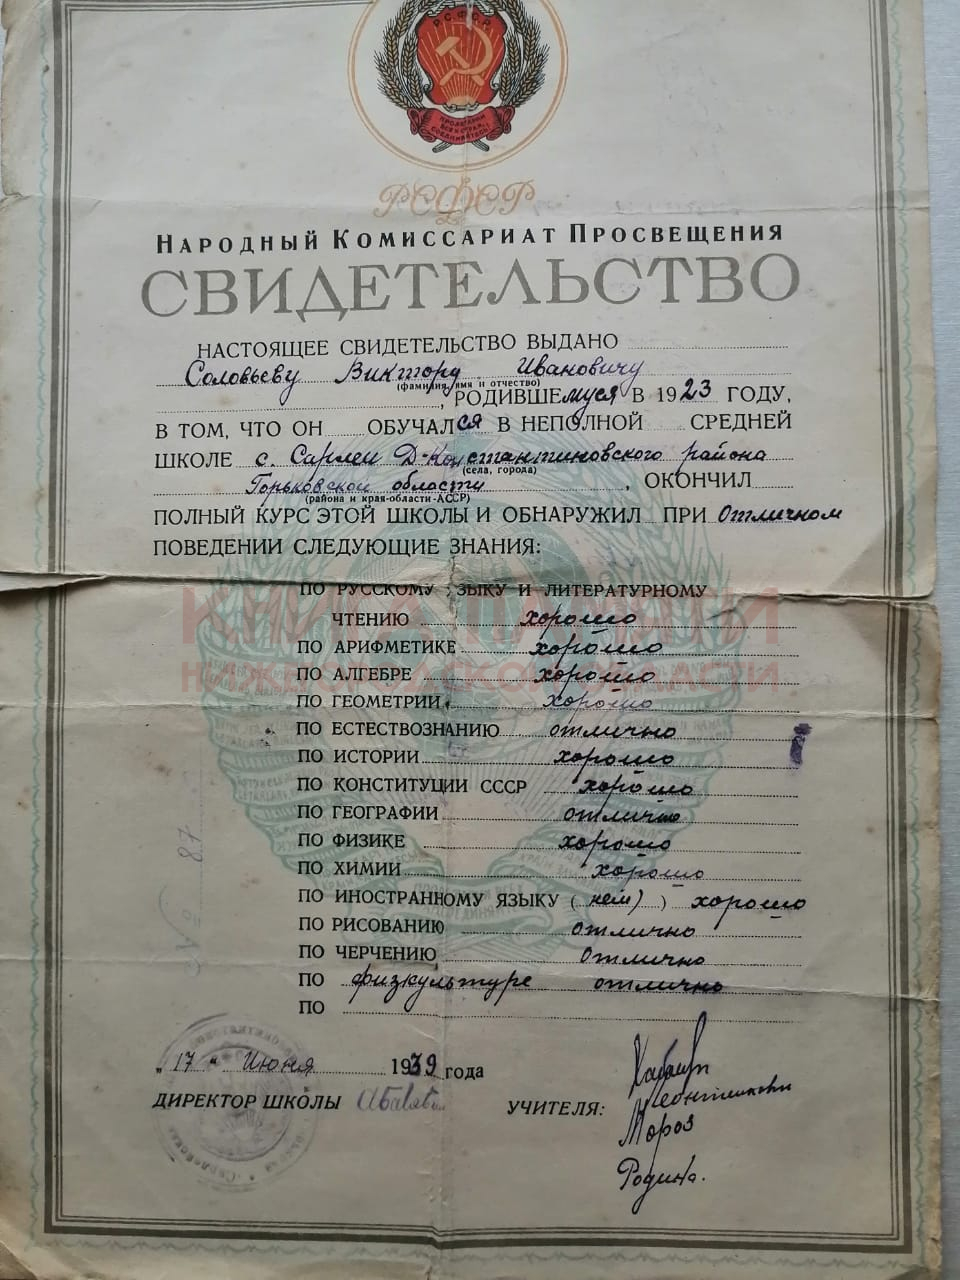 Р.С.Ф.С.Р.
ПРОЛЕТАРИИ
ВСЕХ СТРАН,
СОЕДИНЯЙТЕСЬ!
РСФСР
НАРОДНЫЙ КОМИССАРИАТ ПРОСВЕЩЕНИЯ
СВИДЕТЕЛЬСТВО
НАСТОЯЩЕЕ СВИДЕТЕЛЬСТВО ВЫДАНО
Соловьеву Виктору Ивановичу
(фамилия, имя и отчество)
, РОДИВШЕмуся В 1923 ГОДУ,
В ТОМ, ЧТО ОН ОБУЧАЛся В НЕПОЛНОЙ СРЕДНЕЙ
ШКОЛЕ с. Сарлеи Д-Константиновского района
(села, города)
Горьковской области, ОКОНЧИЛ
(района и края-области-АССР)
ПОЛНЫЙ КУРС ЭТОЙ ШКОЛЫ И ОБНАРУЖИЛ ПРИ Отличном
ПОВЕДЕНИИ СЛЕДУЮЩИЕ ЗНАНИЯ:
ПО РУССКОМУ ЯЗЫКУ И ЛИТЕРАТУРНОМУ
ЧТЕНИЮ хорошо
ПО АРИФМЕТИКЕ хорошо
ПО АЛГЕБРЕ хорошо
ПО ГЕОМЕТРИИ хорошо
ПО ЕСТЕСТВОЗНАНИЮ отлично
ПО ИСТОРИИ хорошо
ПО КОНСТИТУЦИИ СССР хорошо
ПО ГЕОГРАФИИ отлично
ПО ФИЗИКЕ хорошо
ПО ХИМИИ хорошо
ПО ИНОСТРАННОМУ ЯЗЫКУ ( нем) ) хорошо
ПО РИСОВАНИЮ отлично
ПО ЧЕРЧЕНИЮ отлично
ПО физкультуре отлично
ПО
"17" Июня 1939 года
ДИРЕКТОР ШКОЛЫ
УЧИТЕЛЯ:
Мороз
Родина.
№ 87
КНИГА ПАМЯТИ
НИЖЕГОРОДСКОЙ ОБЛАСТИ